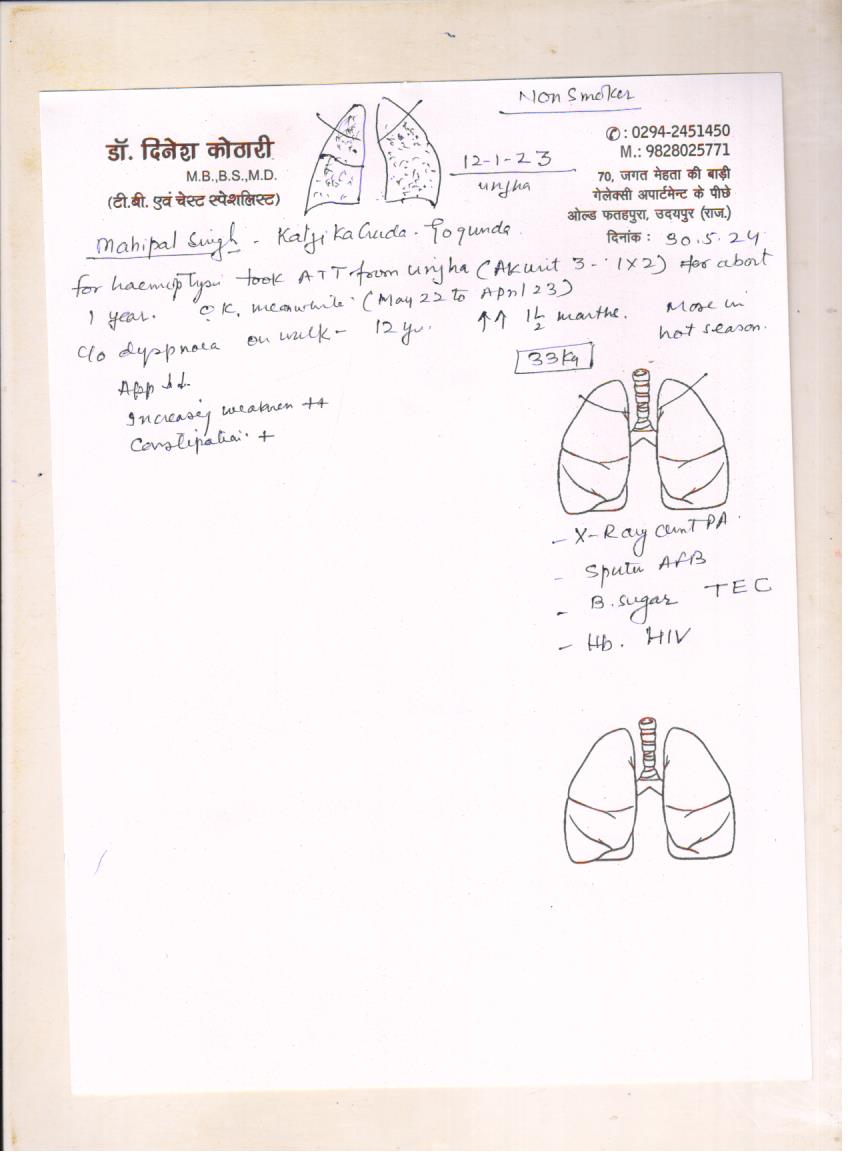 Non Smoker
डॉ. दिनेश कोठारी
M.B.,B.S.,M.D.
(टी.बी. एवं चेस्ट स्पेशलिस्ट)
12-1-23
unjha
✆: 0294-2451450
M.: 9828025771
70, जगत मेहता की बाड़ी
गेलेक्सी अपार्टमेन्ट के पीछे
ओल्ड फतहपुरा, उदयपुर (राज.)
दिनांक : 30.5.24
Mahipal Singh - Katji ka Guda. Gogunda.
for haemoptysis took ATT from unjha (AKurit 3 - 1x2) for about
1 year. O.K. meanwhile. (May 22 to April 23)
c/o dyspnoea on walk - 12 yr. ↑↑ 1½ months. More in
hot season.
33Kg
App ↓↓.
Increasing weakness ++
Constipation +
- X-Ray chest PA
- Sputum AFB
- B.sugar TEC
- Hb. HIV